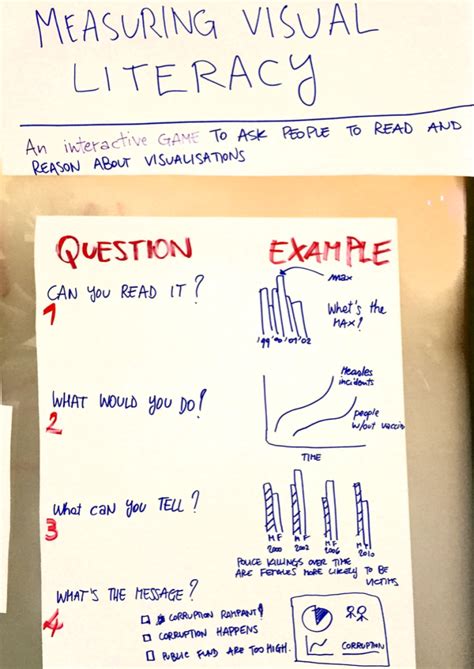 MEASURING VISUAL
LITERACY
An interactive GAME TO ASK PEOPLE TO READ AND
REASON ABOUT VISUALISATIONS
QUESTION
EXAMPLE
CAN YOU READ IT?
1
max
What's the
MAX?
'99 '00 '01 '02
WHAT WOULD YOU DO?
2
Measles
incidents
people
w/out vaccin
TIME
What can you TELL?
3
M F M F M F M F
2000 2002 2006 2010
POLICE KILLINGS OVER TIME
ARE FEMALES MORE LIKELY TO BE
VICTIMS
WHAT'S THE MESSAGE?
4
CORRUPTION RAMPANT!
CORRUPTION HAPPENS
PUBLIC FUND ARE TOO HIGH.
CORRUPTION